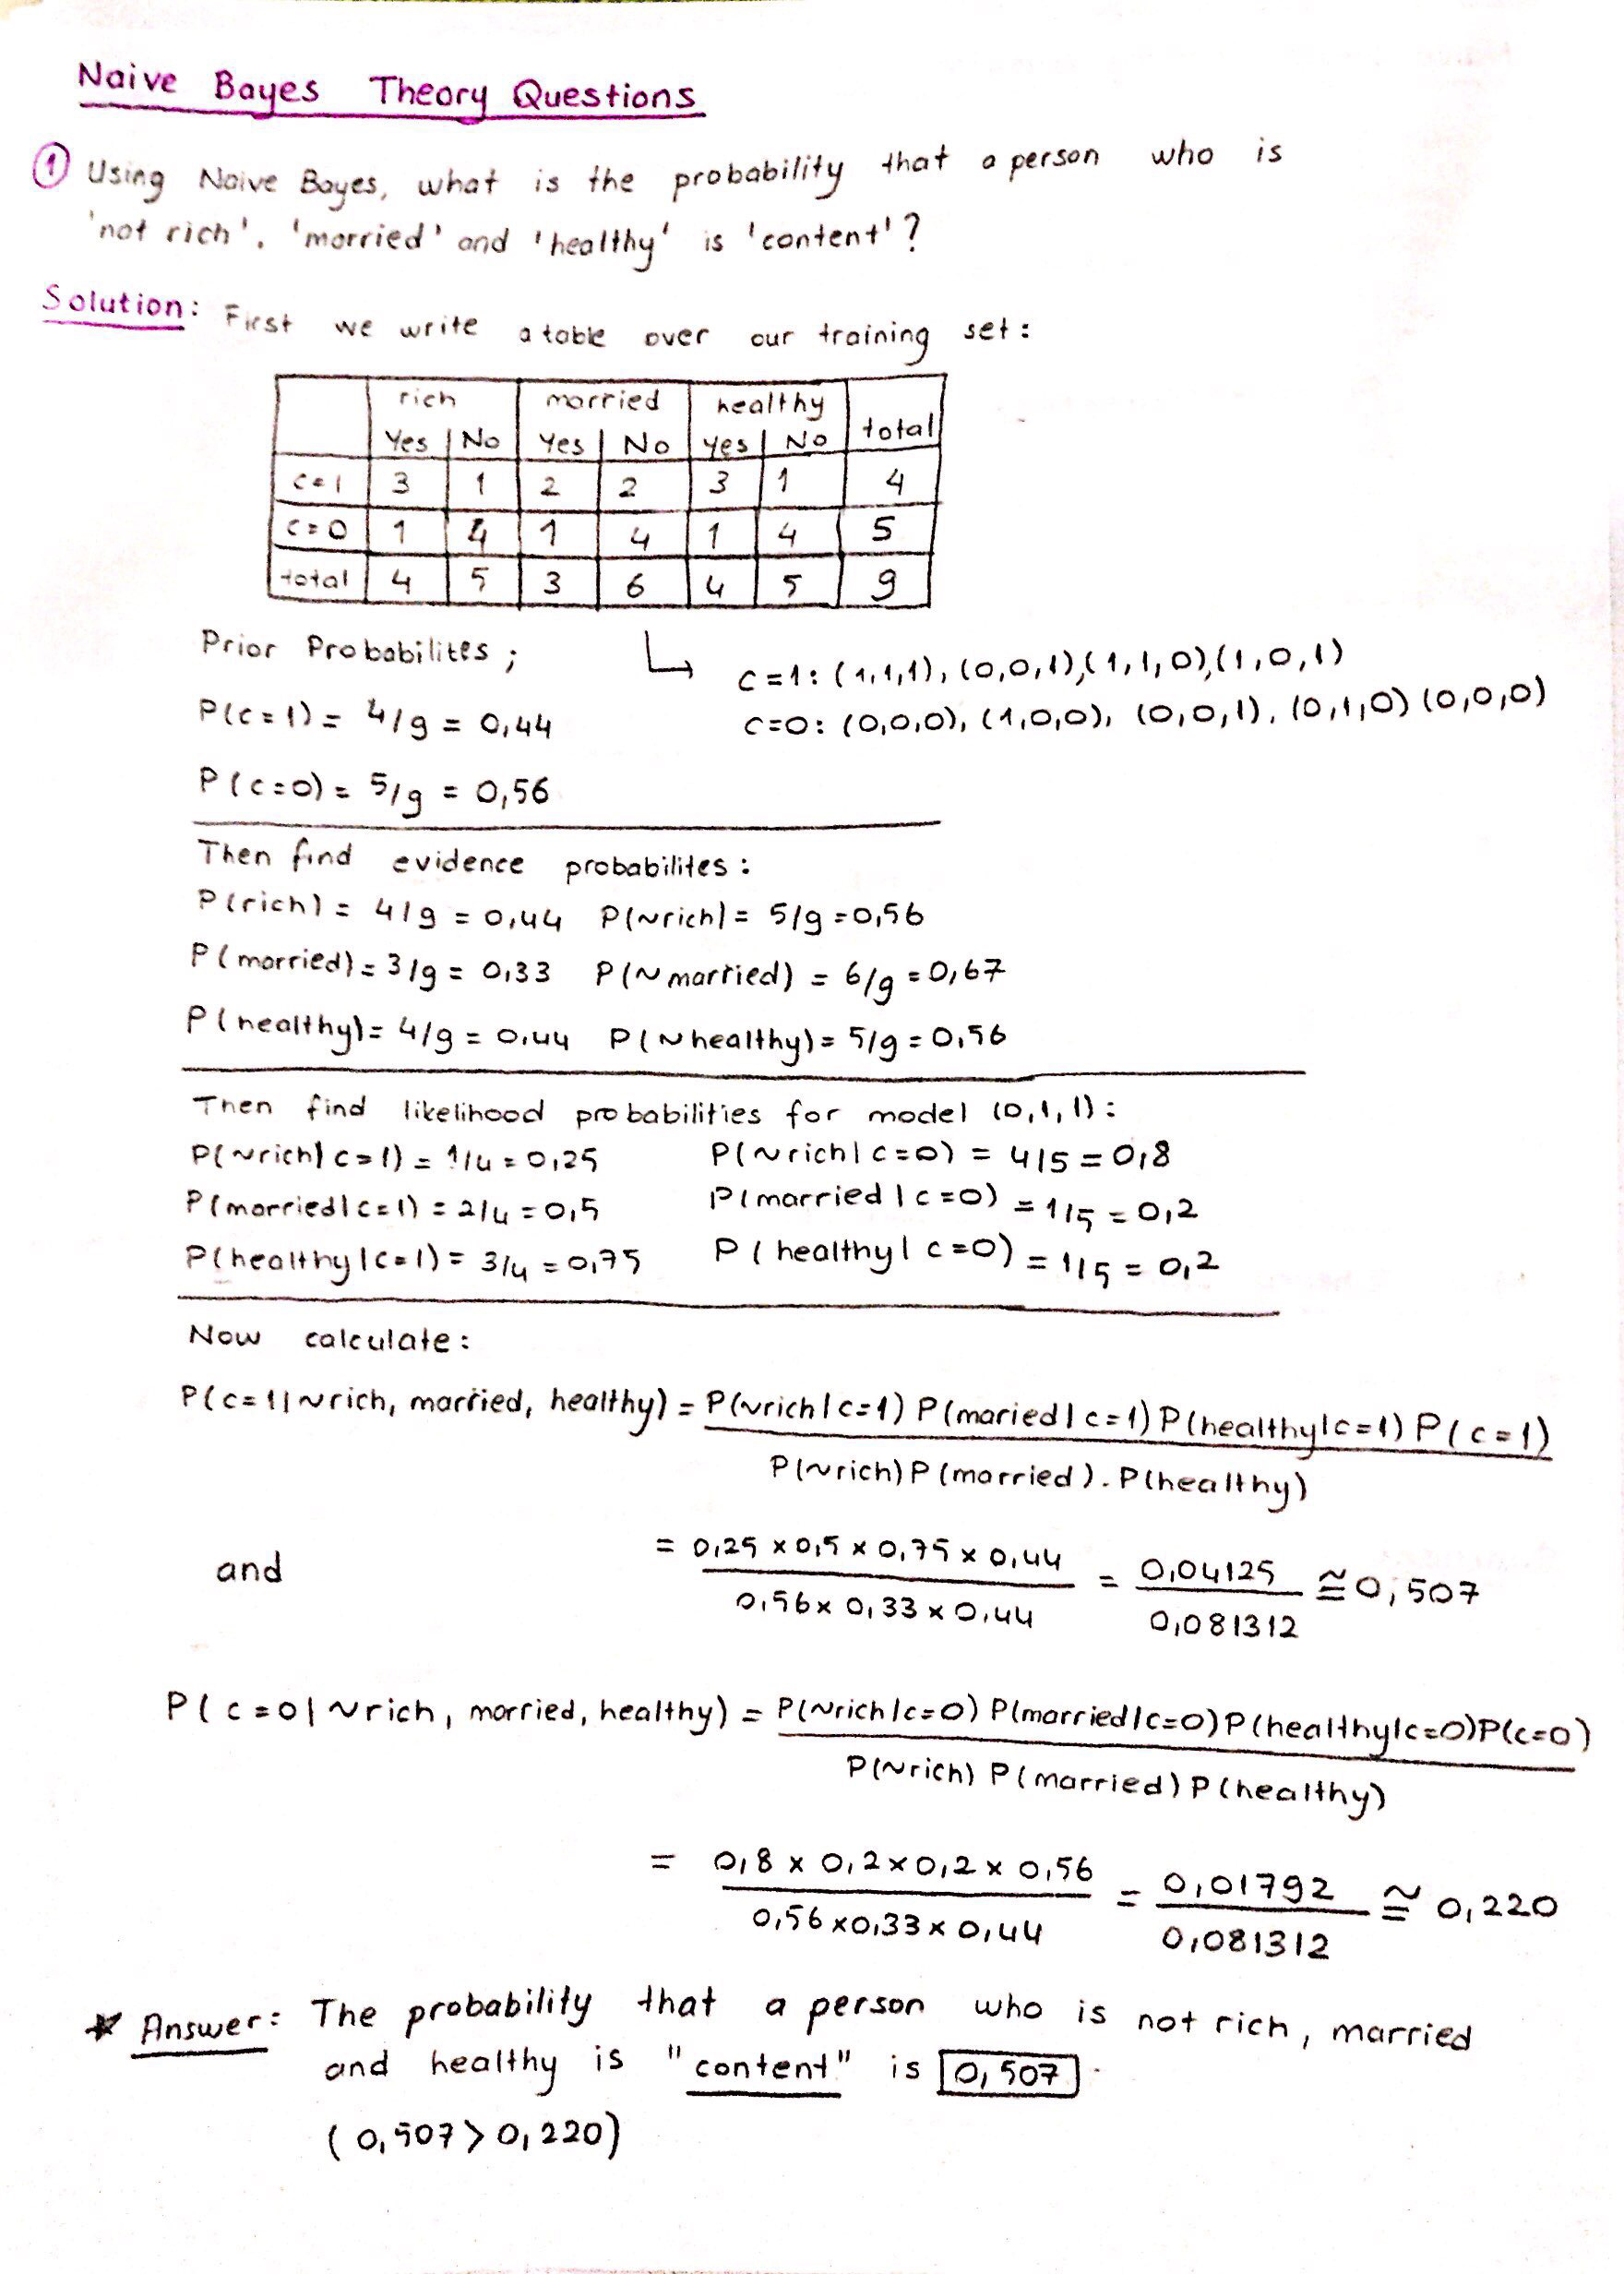 Naive Bayes Theory Questions
① Using Naive Bayes, what is the probability that a person who is
'not rich', 'married' and 'healthy' is 'content'?
Solution: First we write a table over our training set:
rich married healthy total
Yes No Yes No yes No
c=1 3 1 2 2 3 1 4
c=0 1 4 1 4 1 4 5
total 4 5 3 6 4 5 9
Prior Probabilites;
↳ c=1: (1,1,1), (0,0,1), (1,1,0), (1,0,1)
P(c=1) = 4/9 = 0,44
c=0: (0,0,0), (1,0,0), (0,0,1), (0,1,0) (0,0,0)
P(c=0) = 5/9 = 0,56
Then find evidence probabilites:
P(rich) = 4/9 = 0,44 P(~rich) = 5/9 = 0,56
P(married) = 3/9 = 0,33 P(~married) = 6/9 = 0,67
P(healthy) = 4/9 = 0,44 P(~healthy) = 5/9 = 0,56
Then find likelihood probabilities for model (0,1,1):
P(~rich|c=1) = 1/4 = 0,25 P(~rich|c=0) = 4/5 = 0,8
P(married|c=1) = 2/4 = 0,5 P(married|c=0) = 1/5 = 0,2
P(healthy|c=1) = 3/4 = 0,75 P(healthy|c=0) = 1/5 = 0,2
Now calculate:
P(c=1|~rich, married, healthy) = P(~rich|c=1) P(maried|c=1) P(healthy|c=1) P(c=1)
P(~rich) P(married). P(healthy)
and = 0,25 x 0,5 x 0,75 x 0,44 = 0,04125 ≅ 0,507
0,56 x 0,33 x 0,44 0,081312
P(c=0|~rich, married, healthy) = P(~rich|c=0) P(married|c=0) P(healthy|c=0) P(c=0)
P(~rich) P(married) P(healthy)
= 0,8 x 0,2 x 0,2 x 0,56 = 0,01792 ≅ 0,220
0,56 x 0,33 x 0,44 0,081312
* Answer: The probability that a person who is not rich, married
and healthy is "content" is 0,507.
(0,507 > 0,220)